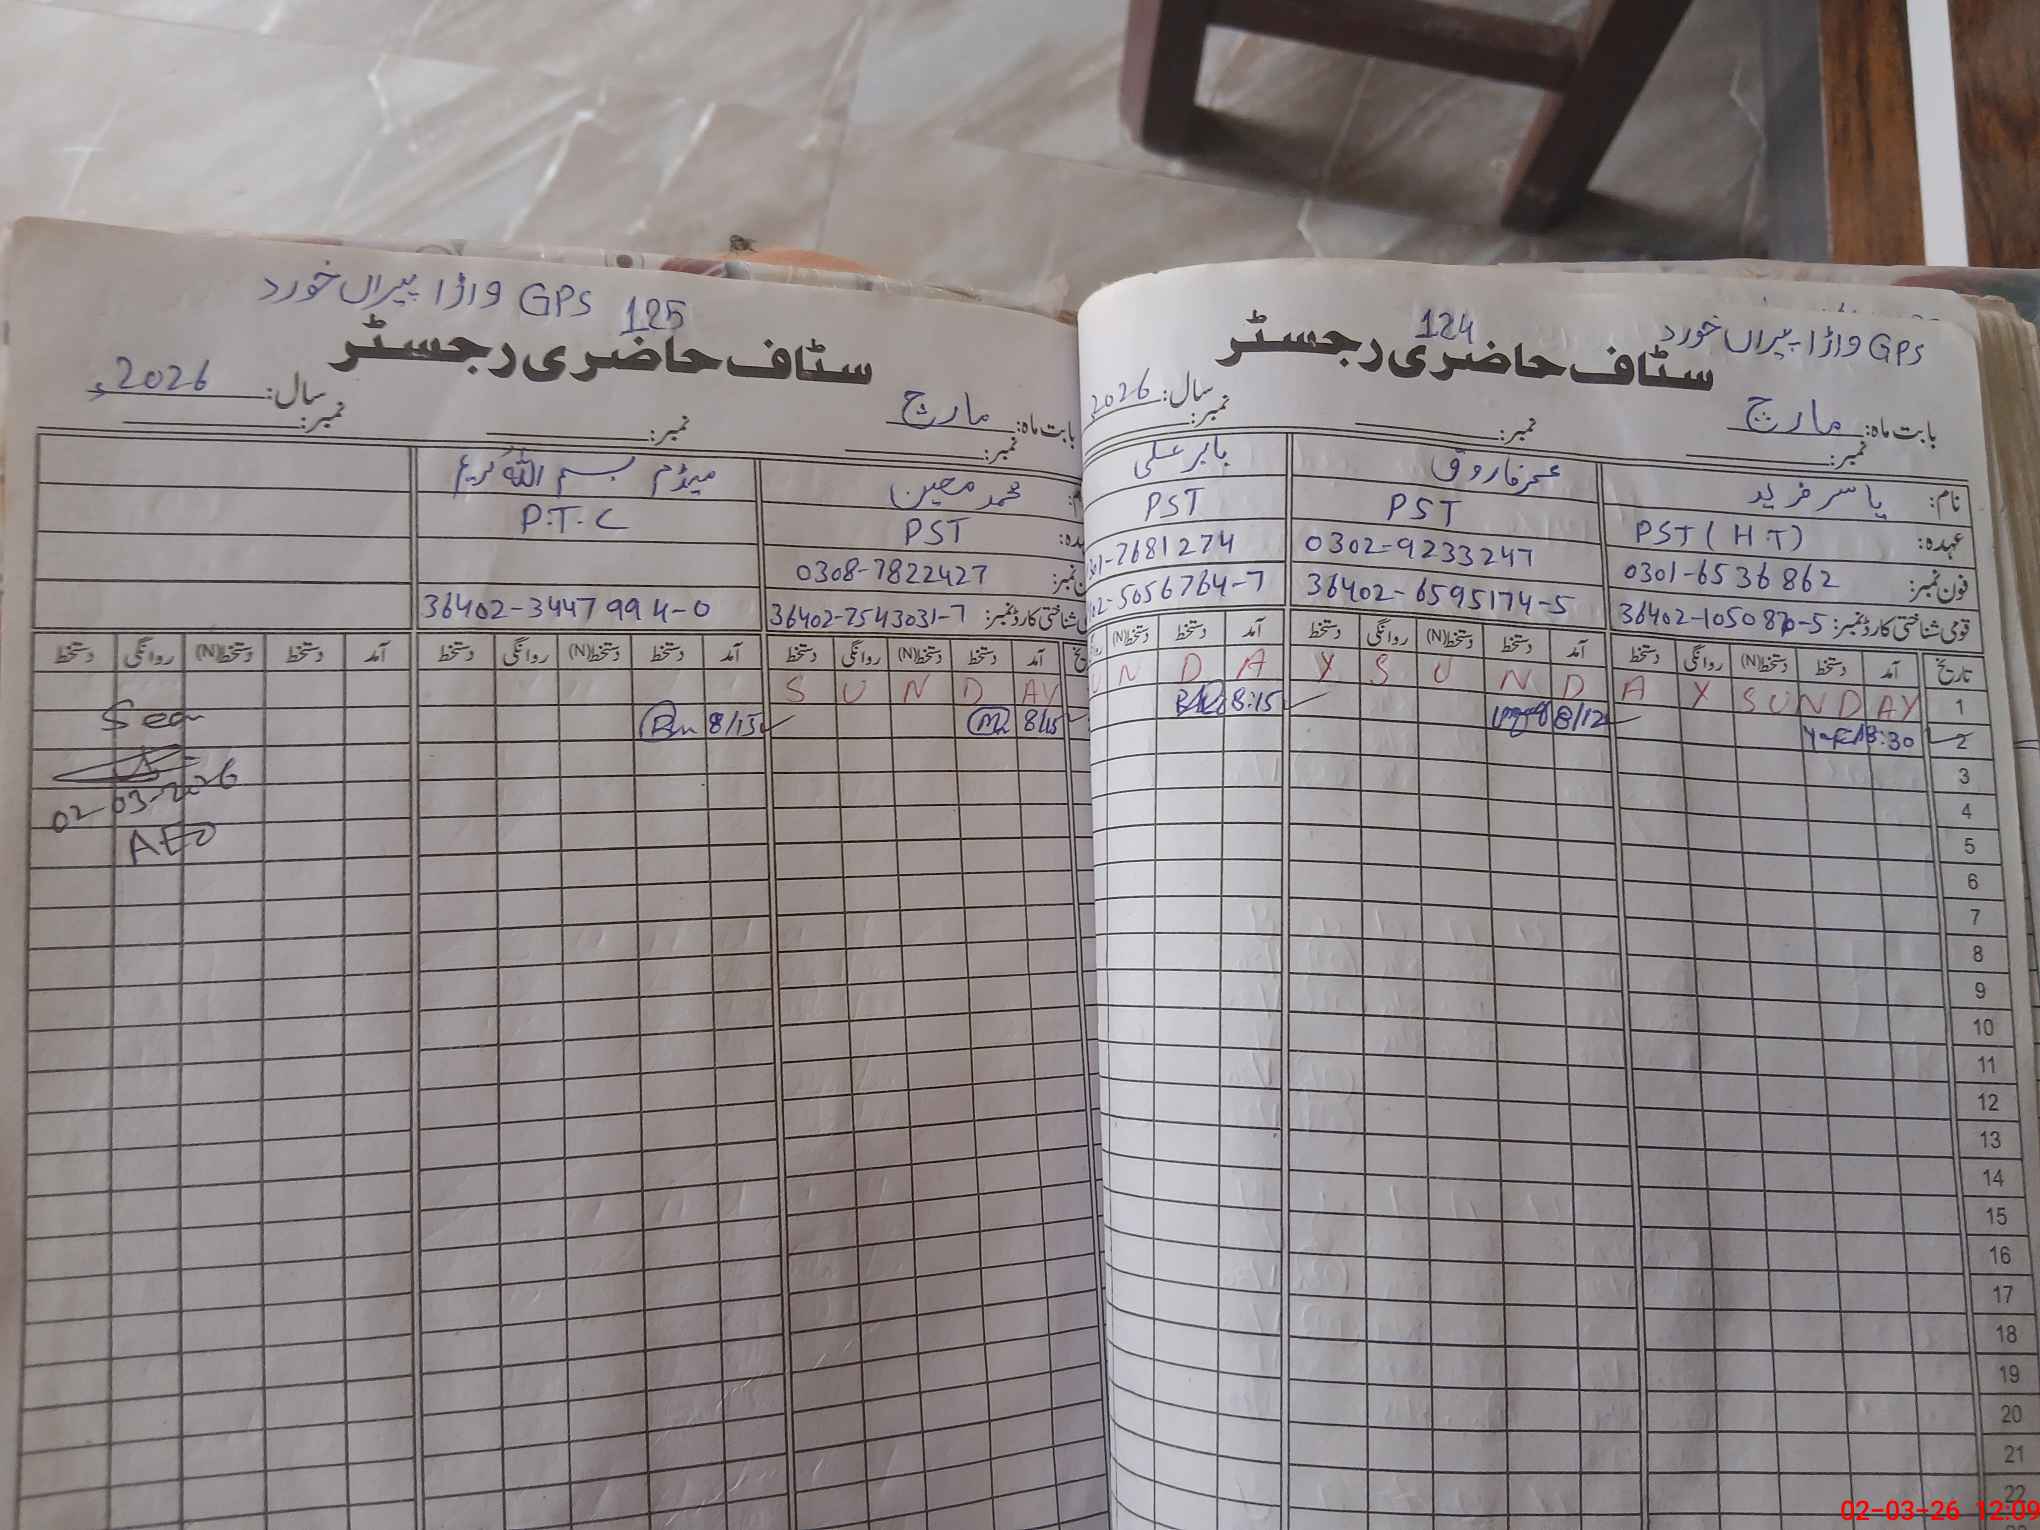 GPS واڑا پیراں خورد
124
سٹاف حاضری رجسٹر
بابت ماہ: مارچ
سال: 2026
نمبر: نمبر: نمبر:
نام: یاسر فرید
عمر فاروق
بابر علی
عہدہ: PST (HT)
PST
PST
فون نمبر: 0301-6536862
0302-9233247
-7681274
قومی شناختی کارڈ نمبر:
36402-6595174-5
-5056764-7
تاریخ آمد دستخط دستخط(N) روانگی دستخط آمد دستخط دستخط(N) روانگی دستخط آمد دستخط دستخط(N)
1 SUNDAY SUNDAY
2 8:30 8/12 8:15
3
4
5
6
7
8
9
10
11
12
13
14
15
16
17
18
19
20
21
22
GPS واڑا پیراں خورد
125
سٹاف حاضری رجسٹر
بابت ماہ: مارچ
سال: 2026ء
نمبر: نمبر: نمبر:
محمد معین
میڈم بسم اللہ کریم
PST
P.T.C
0308-7822427
شناختی کارڈ نمبر: 36402-7543031-7
36402-3447994-0
آمد دستخط دستخط(N) روانگی دستخط آمد دستخط دستخط(N) روانگی دستخط آمد دستخط دستخط(N) روانگی دستخط
SUNDAY
8/15 8/15
Seen
02-03-2026
AEO
02-03-26 12:09